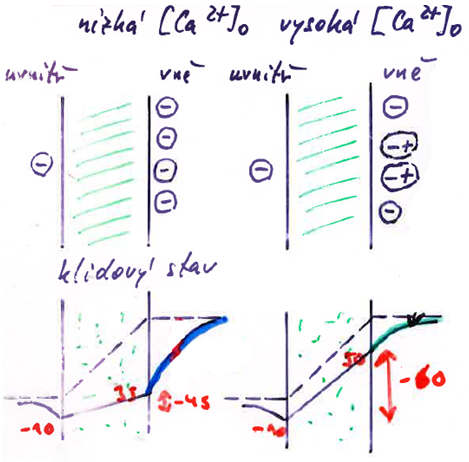 nízká [Ca 2+]o vysoká [Ca 2+]o
uvnitř vně uvnitř vně
⊖
⊖
⊖ ⊖ ⊖ -+
⊖ -+
⊖
klidový stav
35 50
-45 -60
-10 -10